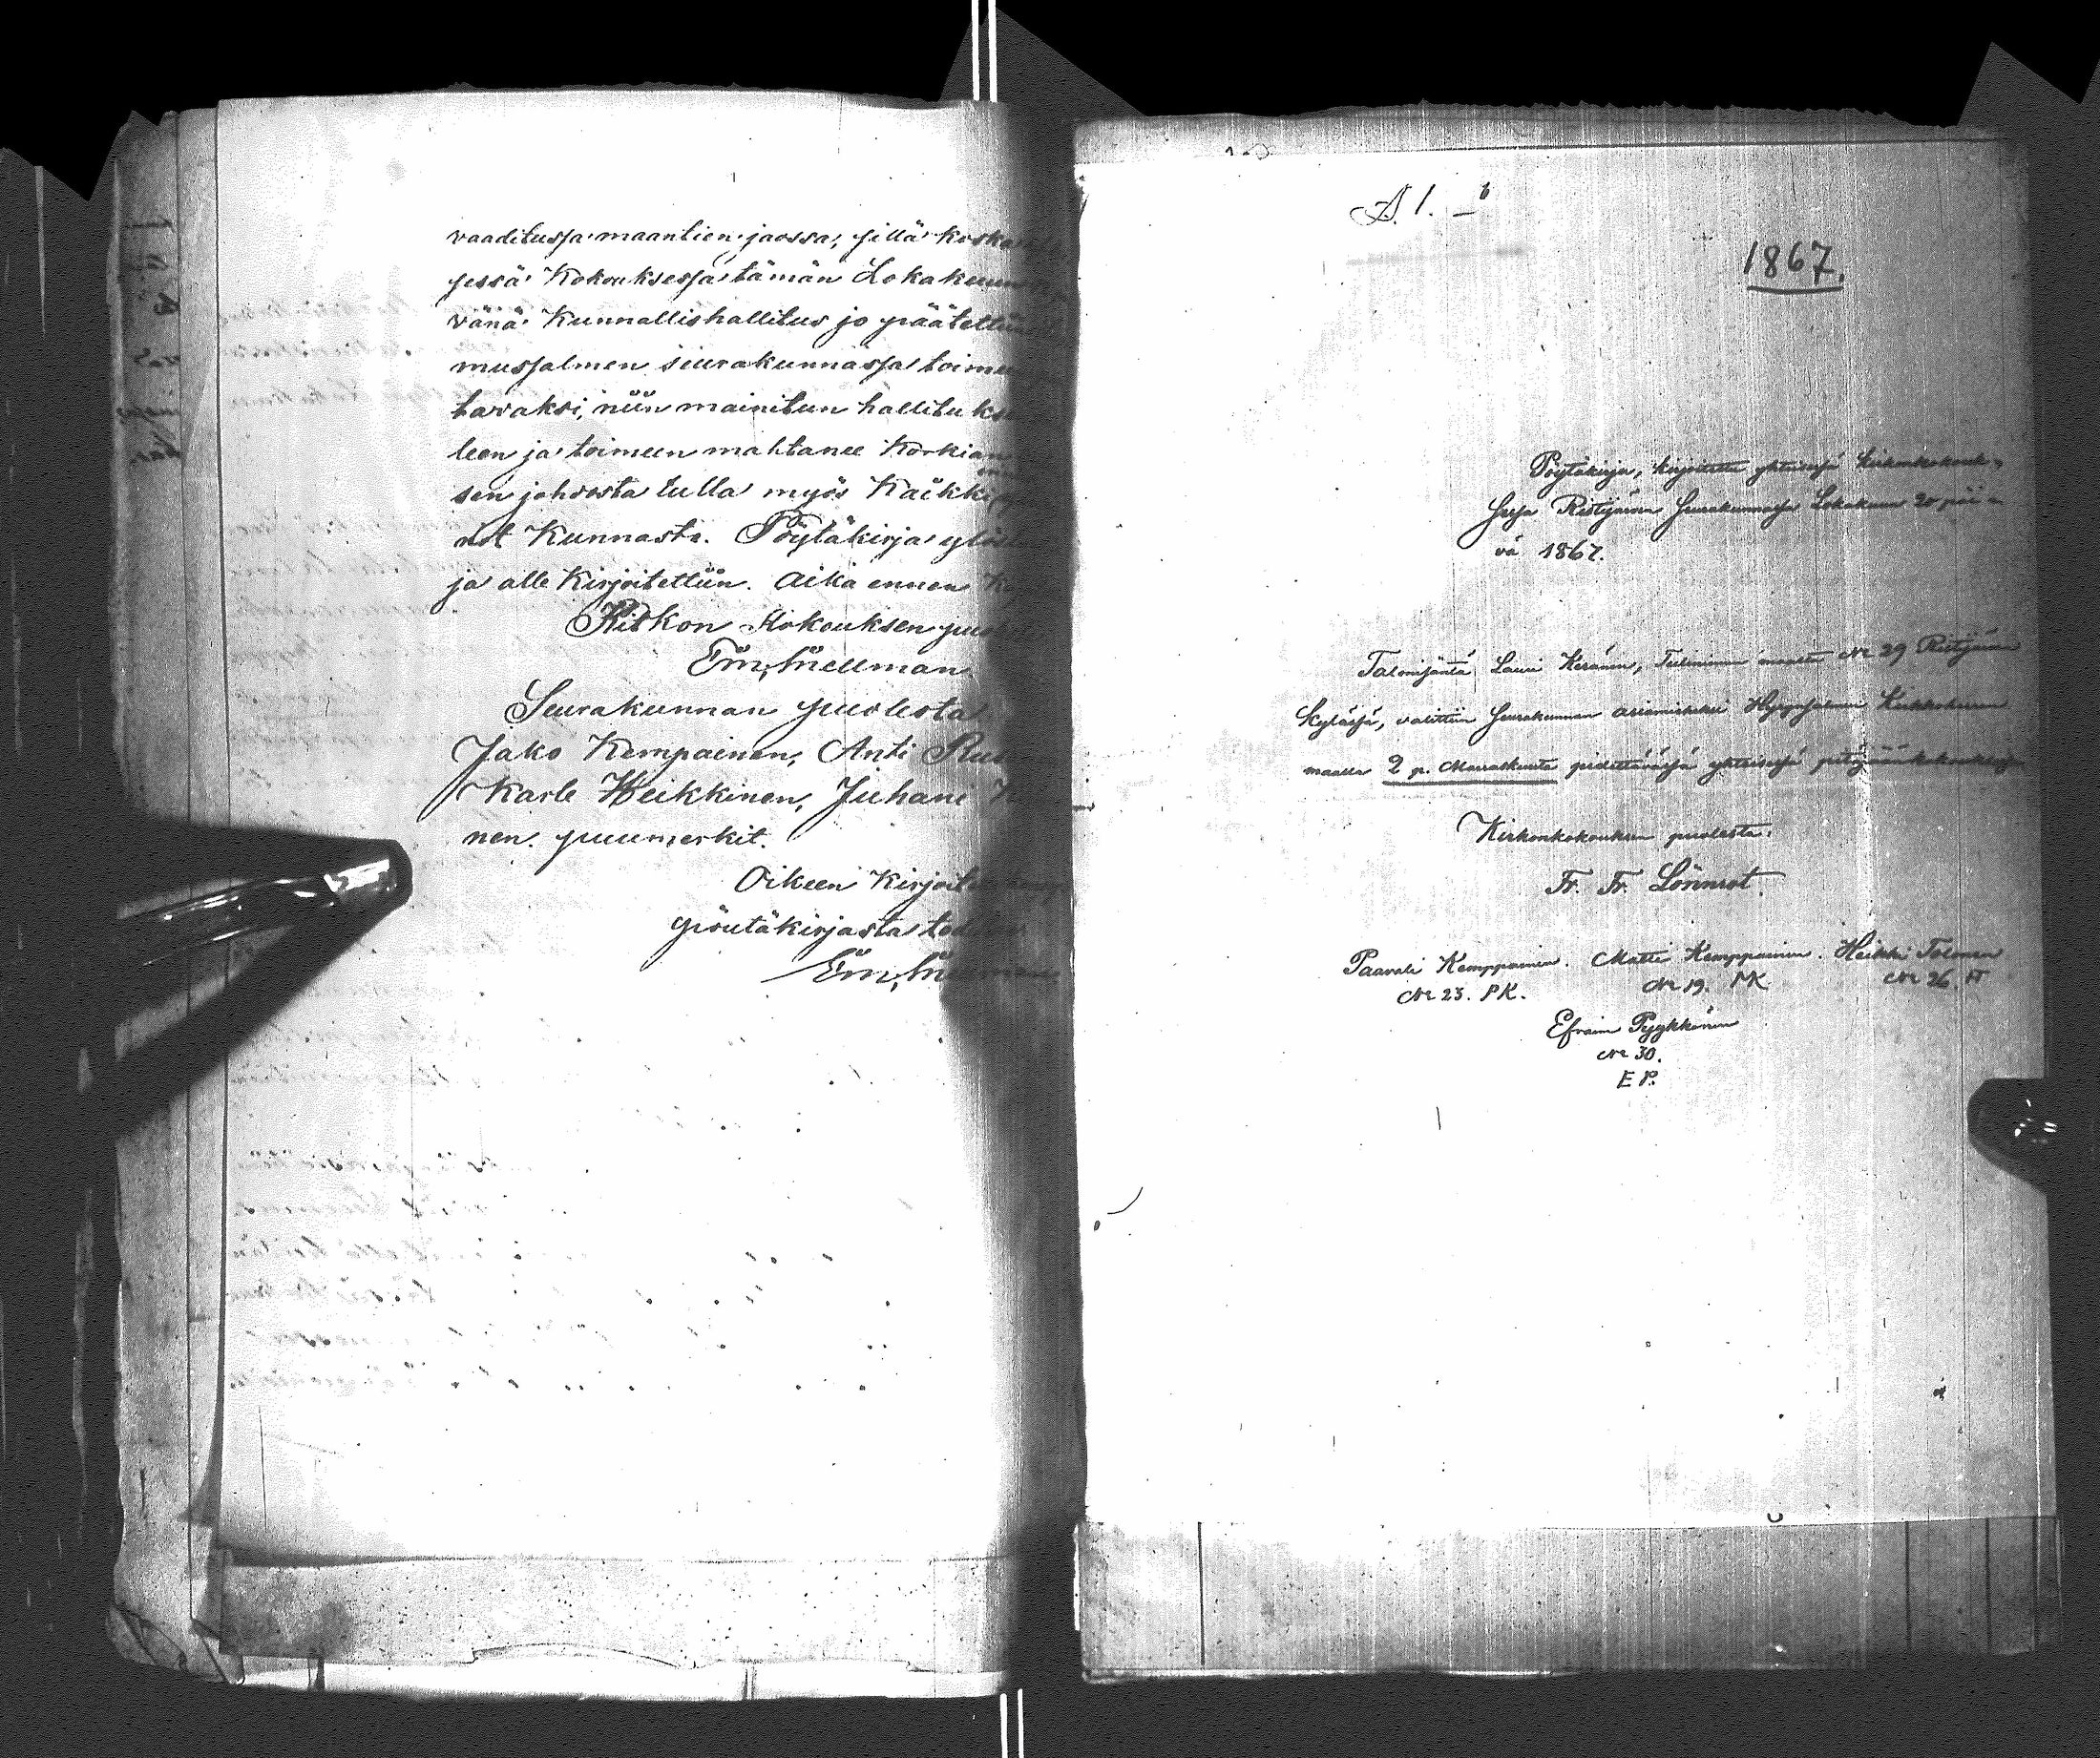 vaaditussa maantien jaossa, sillä koska
sessä Kokouksessa tämän Lokakuun
vänä Kunnallishallitus jo päätettiin
mussalmen seurakunnassa toimi
tavaksi, niin mainitun hallituksen
leen ja toimeen mahtanee Korkian
sen johdosta tulla myös Kaikki
not Kunnasta. Pöytäkirja ylös
ja alle Kirjoitettiin. Aika ennen
Kirkon Kokouksen puo
Em, Snellman
Seurakunnan puolesta
Jako Kempainen, Anti
Karle Heikkinen, Juhani
nen. puumerkit.
Oikeen Kirjoite
pöutäkirjasta tod
Em, Snellman
A. 1. 6
1867.
Pöytäkirja, kirjoitettu yhteisessä kirkonkokouk-
sessa Ristijärven Seurakunnassa Lokakuun 20 päi-
vä 1867.
Talonisäntä Lauri Keränen, maalta № 29 Ristijärven
kylässä, valittiin Seurakunnan asiamieheksi Hyrynsalmen
maalla 2 p. Marraskuuta pidettävässä yhteisessä pitäjäänkokouksessa
Kirkonkokouksen puolesta:
Fr. Fr. Lönnrot.
Paavali Kemppainen. Matti Kemppainen. Heikki Tolonen
№ 23. PK. № 19. MK № 26. HT
Efraim Pyykkönen
№ 30.
E P.